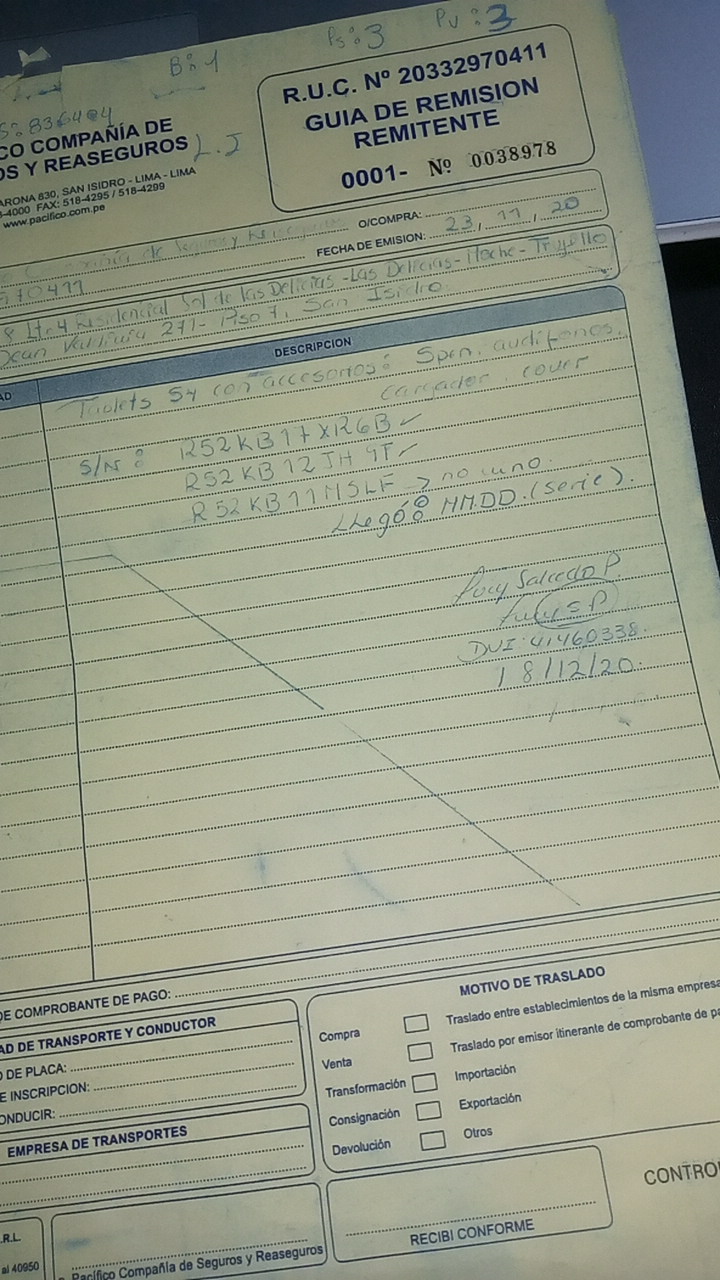 B:1 Ps:3 PV:3
S:836484
CO COMPAÑÍA DE
OS Y REASEGUROS L.J
ARONA 830, SAN ISIDRO - LIMA - LIMA
-4000 FAX: 518-4295 / 518-4299
www.pacifico.com.pe
R.U.C. Nº 20332970411
GUIA DE REMISION
REMITENTE
0001- Nº 0038978
de Seguros y O/COMPRA:
970411 FECHA DE EMISION: 23, 11, 20
8 Lte4 Residencial Sol de las Delicias - Las Delicias - Moche - Trujillo
271 - Piso 7, San Isidro
AD DESCRIPCION
Tablets S4 con accesorios: Spen, audifonos,
cargador, cover
S/N: R52KB1
R52KB12JH
R52KB11MSLF → no
Llegó: MMDD. (serie).
Salcedo P.
41460338.
18/12/20.
DE COMPROBANTE DE PAGO:
AD DE TRANSPORTE Y CONDUCTOR
O DE PLACA:
E INSCRIPCION:
ONDUCIR:
EMPRESA DE TRANSPORTES
MOTIVO DE TRASLADO
Compra Traslado entre establecimientos de la misma empresa
Venta Traslado por emisor itinerante de comprobante de pa
Transformación Importación
Consignación Exportación
Devolución Otros
.R.L.
al 40950
Pacífico Compañía de Seguros y Reaseguros
RECIBI CONFORME
CONTRO